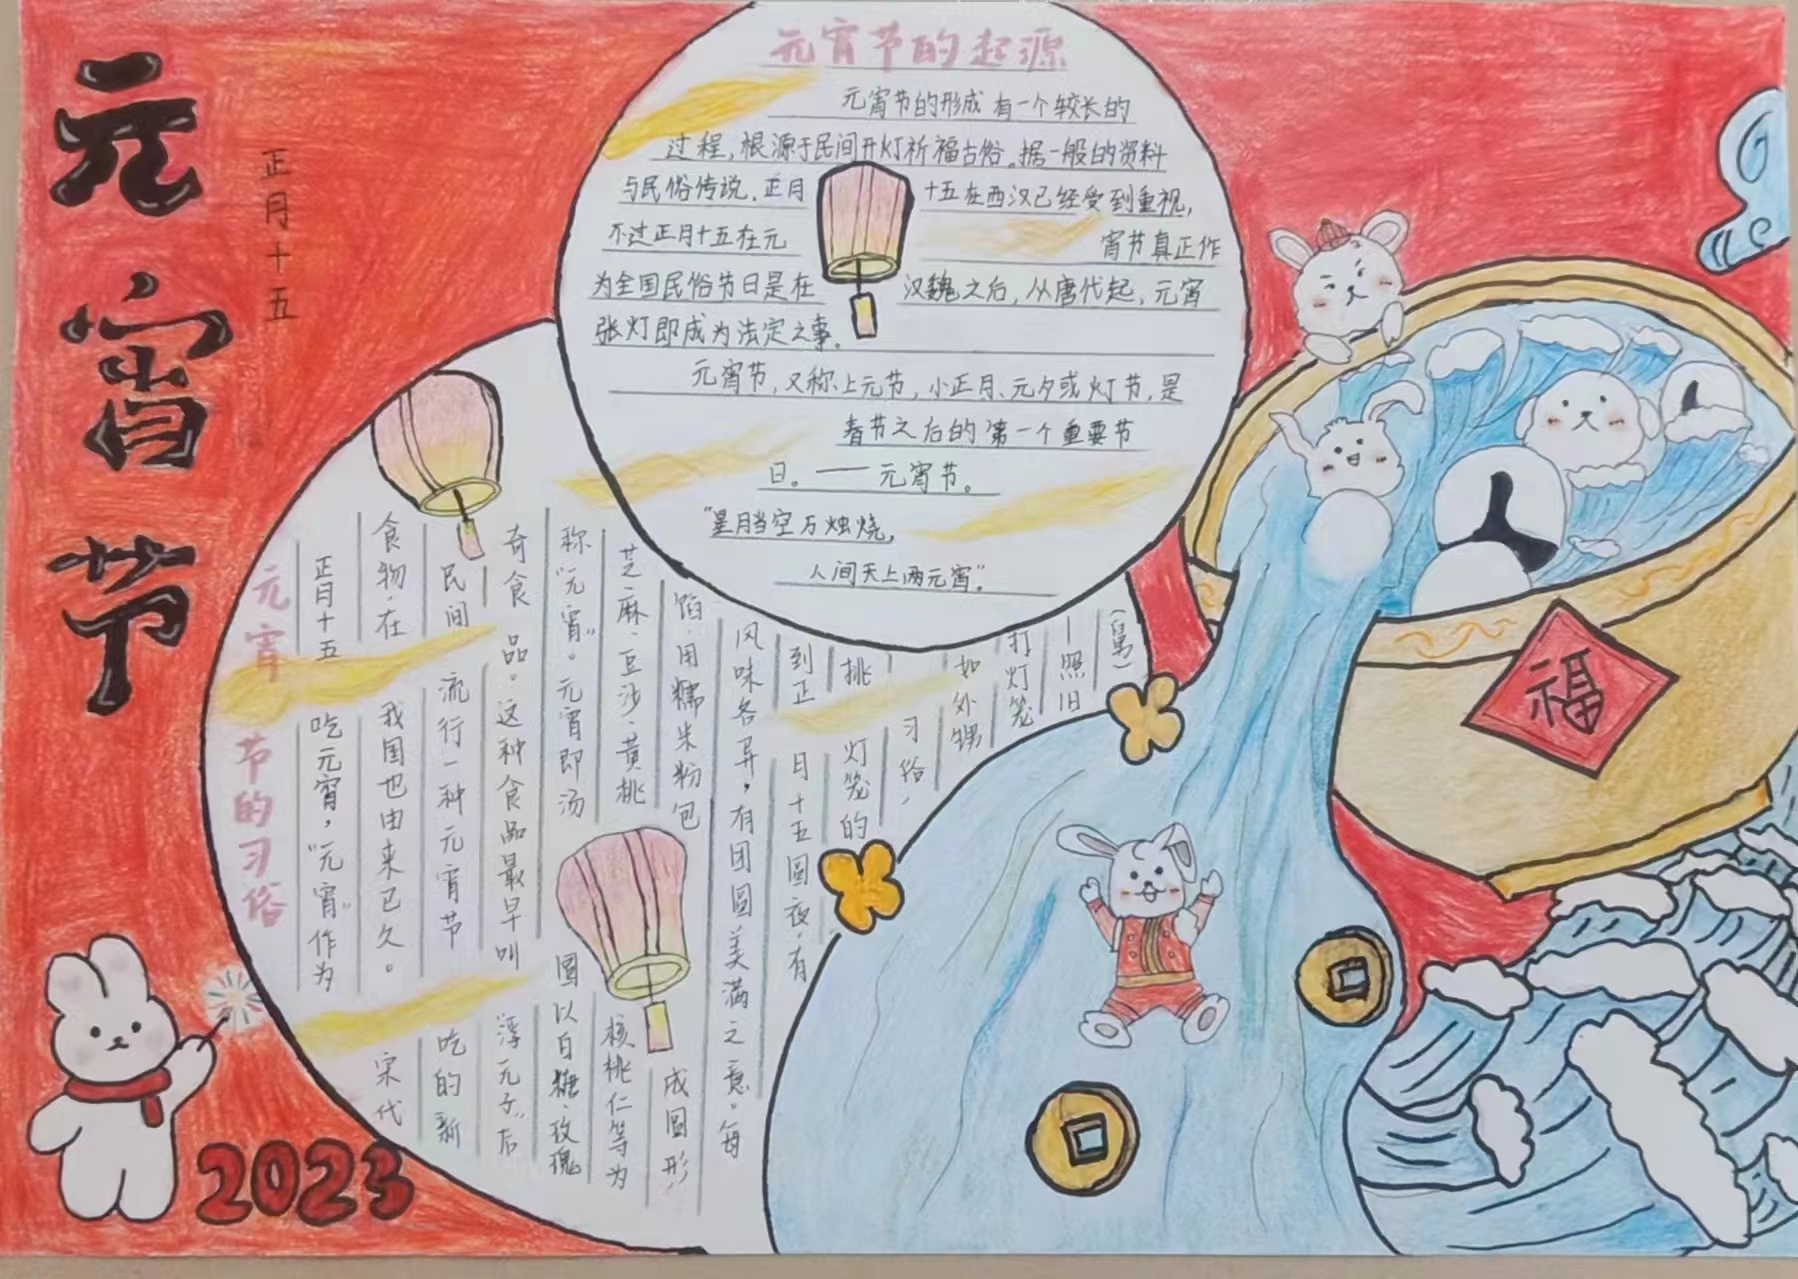 元宵节
正月十五
元宵节的起源
元宵节的形成有一个较长的
过程,根源于民间开灯祈福古俗。据一般的资料
与民俗传说,正月十五在西汉已经受到重视,
不过正月十五在元宵节真正作
为全国民俗节日是在汉魏之后,从唐代起,元宵
张灯即成为法定之事。
元宵节,又称上元节,小正月、元夕或灯节,是
春节之后的第一个重要节
日。——元宵节。
"星月当空万烛烧,
人间天上两元宵"。
元宵节的习俗
正月十五吃元宵,"元宵"作为
食物,在我国也由来已久。宋代
民间流行一种元宵节吃的新
奇食品。这种食品最早叫"浮元子"后
称"元宵"。元宵即汤圆以白糖、玫瑰
芝麻、豆沙、黄桃核桃仁等为
馅,用糯米粉包成圆形
风味各异,有团圆美满之意。每
到正月十五圆夜,有
挑灯笼的
习俗,
如外甥
打灯笼
—照旧
(舅)
福
2023